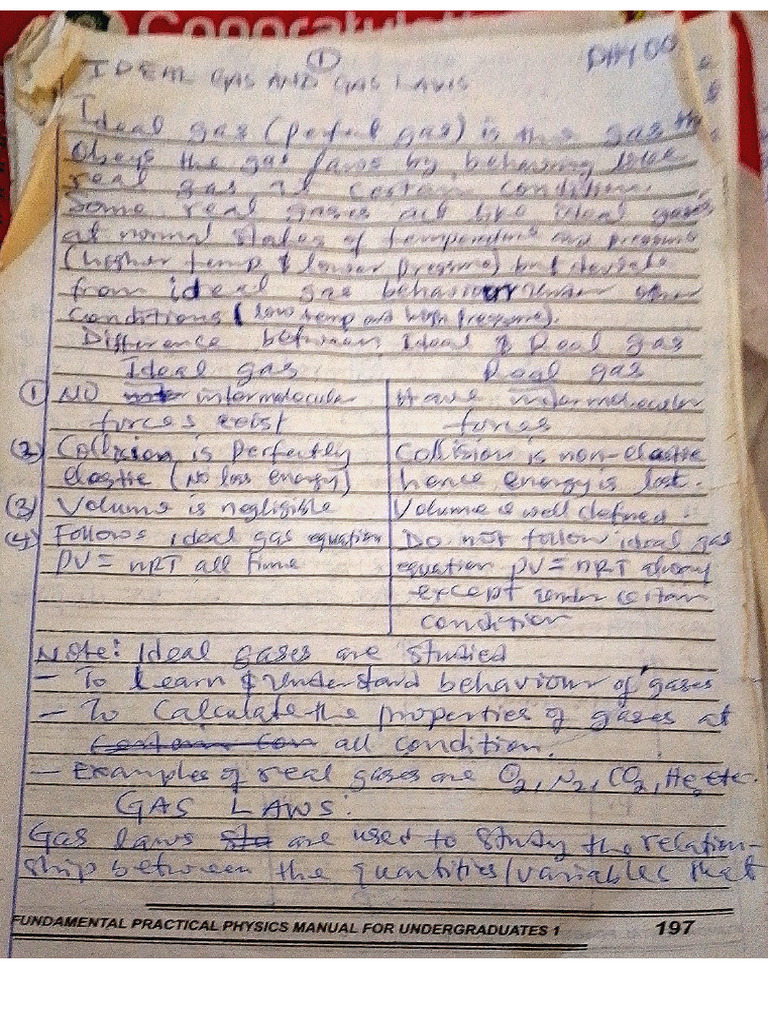 Congratulat
①
PHY 00
IDEAL GAS AND GAS LAWS
Ideal gas (perfect gas) is the gas th
obeys the gas laws by behaving like
real gas at certain condition.
Some real gases act like ideal gases
at normal states of temperature and pressure
(higher temp & lower pressure) but deviate
from ideal gas behaviour under other
conditions (low temp and high pressure).
Difference between Ideal & Real gas
Ideal gas Real gas
① NO intermolecular Have intermolecular
forces exist forces
② Collision is perfectly Collision is non-elastic
elastic (No loss energy) hence energy is lost.
③ Volume is negligible Volume is well defined.
④ Follows ideal gas equation Do not follow ideal gas
PV = nRT all time equation PV = nRT always
except under certain
condition
Note: Ideal gases are studied
- To learn & understand behaviour of gases
- To calculate the properties of gases at
all condition.
- Examples of real gases are O2, N2, CO2, He etc.
GAS LAWS:
Gas laws are used to study the relation-
ship between the quantities/variables that
FUNDAMENTAL PRACTICAL PHYSICS MANUAL FOR UNDERGRADUATES 1 197